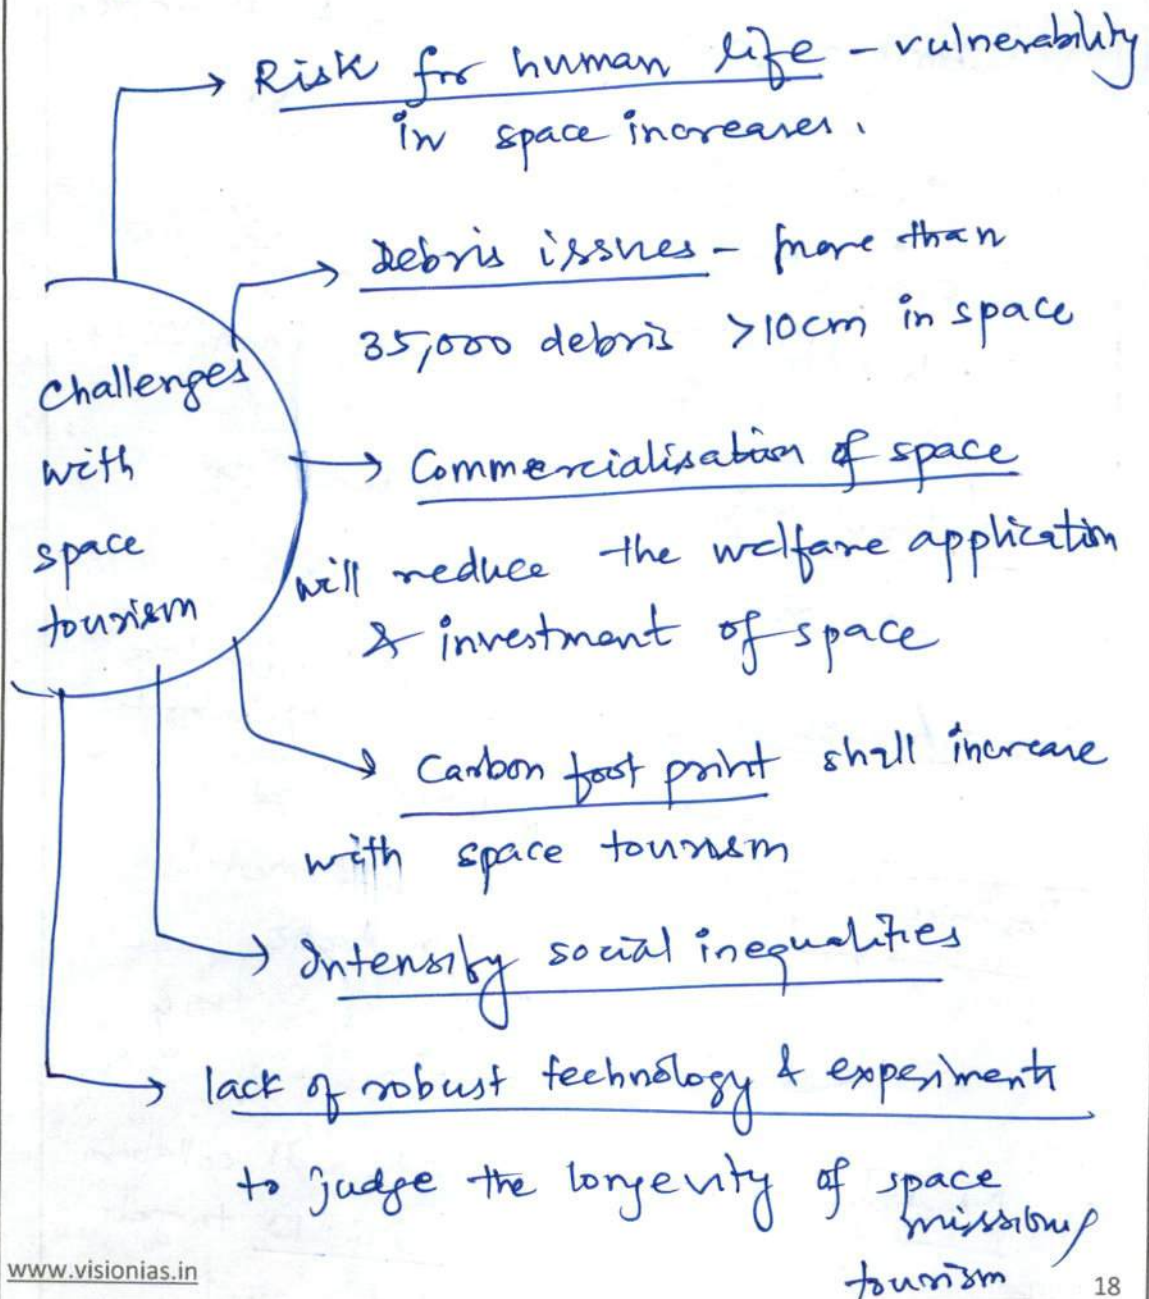 Risk for human life - vulnerability
in space increases.
Debris issues - more than
35,000 debris >10cm in space
Challenges
with
space
tourism
Commercialisation of space
will reduce the welfare application
& investment of space
Carbon foot print shall increase
with space tourism
Intensify social inequalities
lack of robust technology & experiments
to judge the longevity of space
missions/
tourism
www.visionias.in
18